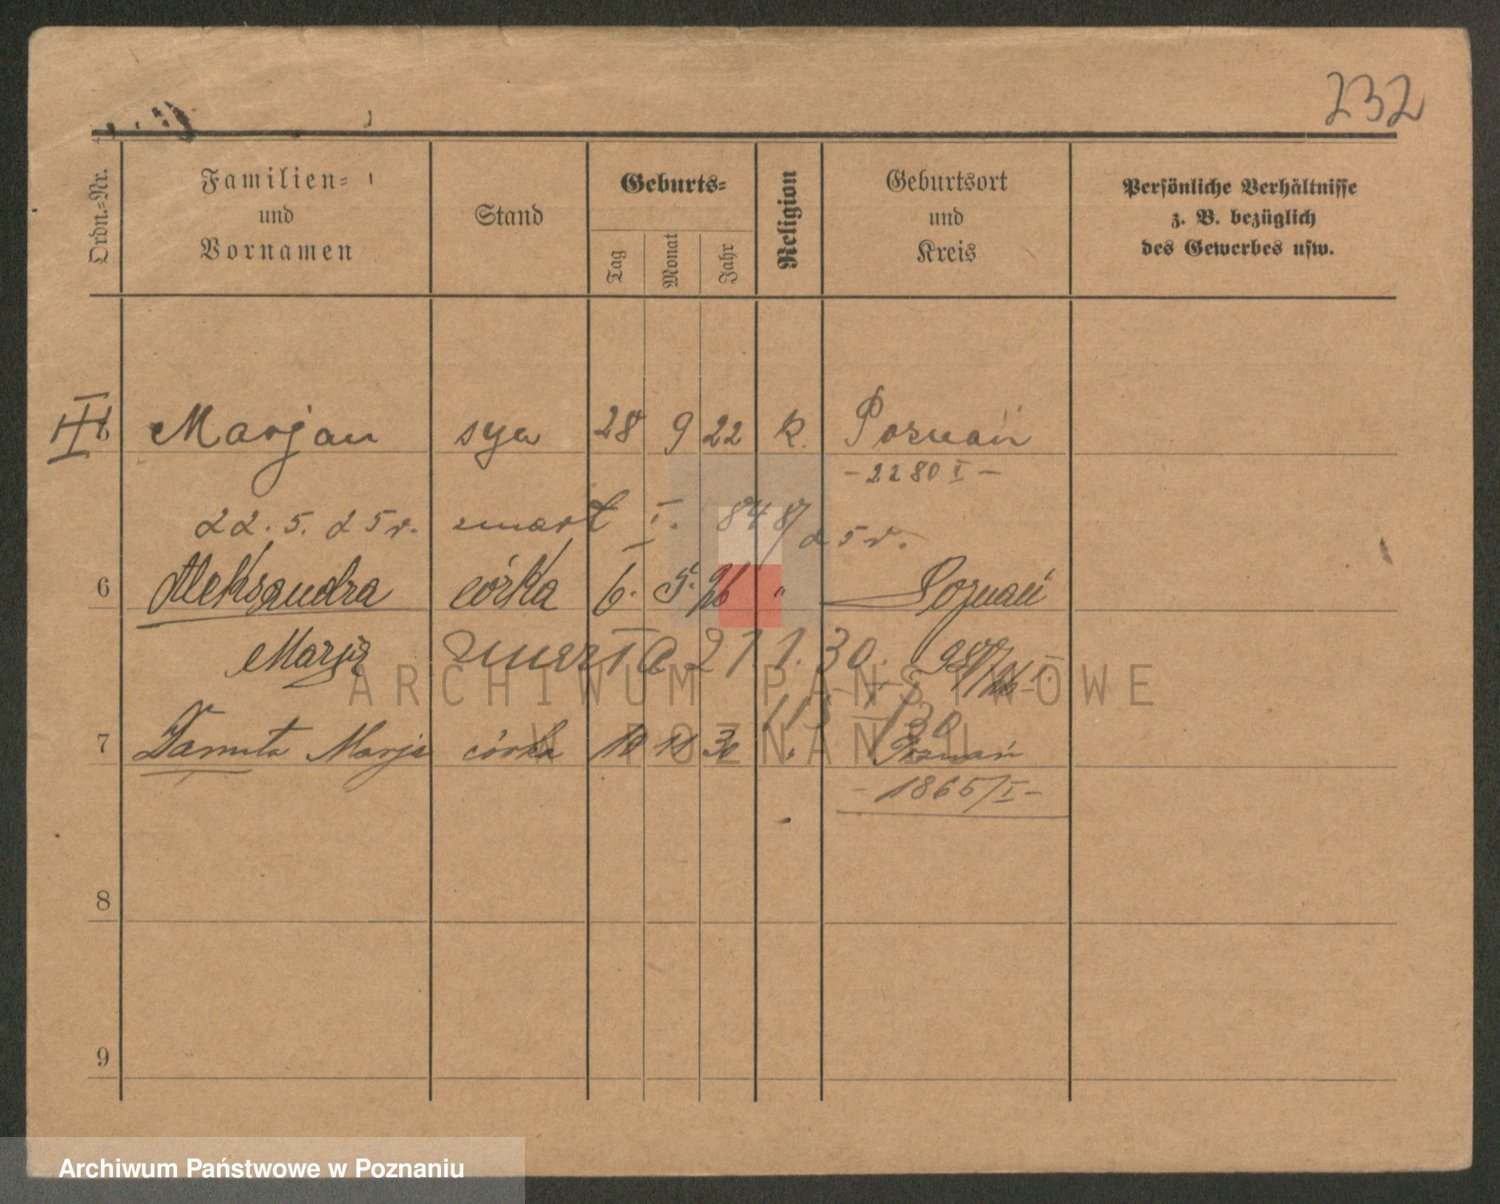 232
Ordn.=Nr.
Familien=
und
Vornamen
Stand
Geburts=
Tag
Monat
Jahr
Religion
Geburtsort
und
Kreis
Persönliche Verhältnisse
z. B. bezüglich
des Gewerbes usw.
III Marjan syn 28 9 22 k. Poznań
- 2280 I -
22. 5. 25 r. zmarł I. 848/25 r.
6 Aleksandra córka 6. 5. 26 " Poznań
Marja zmarła 21. 1. 30.
113 I/30
7 Danuta Marja córka 10 11 30 " Poznań
- 1865/I -
8
9
ARCHIWUM PAŃSTWOWE
W POZNANIU
Archiwum Państwowe w Poznaniu